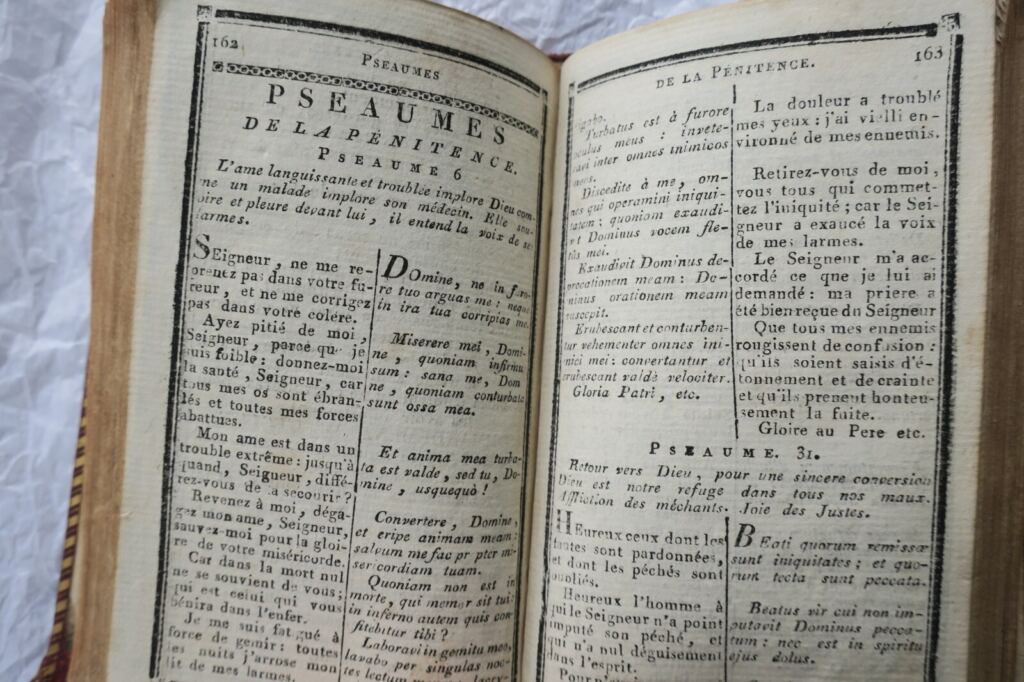 162
PSEAUMES
PSEAUMES
DE LA PÉNITENCE.
PSEAUME 6
L'ame languissante et troublée implore Dieu com-
me un malade implore son médecin. Elle sou-
pire et pleure devant lui, il entend la voix de ses
larmes.
SEigneur, ne me re-
prenez pas dans votre fu-
reur, et ne me corrigez
pas dans votre colere.
Ayez pitié de moi,
Seigneur, parce que je
suis foible: donnez-moi
la santé, Seigneur, car
tous mes os sont ébran-
lés et toutes mes forces
abattues.
Mon ame est dans un
trouble extrême: jusqu'à
quand, Seigneur, diffé-
rez-vous de la secourir?
Revenez à moi, déga-
gez mon ame, Seigneur,
sauvez-moi pour la gloi-
re de votre miséricorde.
Car dans la mort nul
ne se souvient de vous;
qui est celui qui vous
bénira dans l'enfer.
Je me suis fatigué à
force de gemir: toutes
les nuits j'arrose mon
lit de mes larmes.
Domine, ne in furo-
re tuo arguas me: neque
in ira tua corripias me.
Miserere mei, Domi-
ne, quoniam infirmus
sum: sana me, Dom
ne, quoniam conturbata
sunt ossa mea.
Et anima mea turba-
ta est valde, sed tu, Do-
mine, usquequò!
Convertere, Domine,
et eripe animam meam:
salvum me fac pr pter mi-
sericordiam tuam.
Quoniam non est in
morte, qui memor sit tui:
in inferno autem quis con-
fitebitur tibi?
Laboravi in gemitu meo,
lavabo per singulas noc-
tes lectum meum
163
DE LA PÉNITENCE.
Turbatus est à furore
oculus meus: invete-
ravi inter omnes inimicos
meos.
Discedite à me, om-
nes qui operamini iniqui-
tatem: quoniam exaudi-
vit Dominus vocem fle-
tûs mei.
Exaudivit Dominus de-
precationem meam: Do-
minus orationem meam
suscepit.
Erubescant et conturben-
tur vehementer omnes ini-
mici mei: convertantur et
erubescant valdè velociter.
Gloria Patri, etc.
La douleur a troublé
mes yeux: j'ai vieilli en-
vironné de mes ennemis.
Retirez-vous de moi,
vous tous qui commet-
tez l'iniquité; car le Sei-
gneur a exaucé la voix
de mes larmes.
Le Seigneur m'a ac-
cordé ce que je lui ai
demandé: ma priere a
été bien reçue du Seigneur
Que tous mes ennemis
rougissent de confusion:
qu'ils soient saisis d'é-
tonnement et de crainte
et qu'ils prenent honteu-
sement la fuite.
Gloire au Pere etc.
PSEAUME. 31.
Retour vers Dieu, pour une sincere conversion
Dieu est notre refuge dans tous nos maux.
Affliction des méchants. Joie des Justes.
HEureux ceux dont les
fautes sont pardonnées,
et dont les péchés sont
oubliés.
Heureux l'homme à
qui le Seigneur n'a point
imputé son péché, et
qui n'a nul déguisement
dans l'esprit.
BEati quorum remissæ
sunt iniquitates; et quo-
rum tecta sunt peccata.
Beatus vir cui non im-
putavit Dominus pecca-
tum: nec est in spiritu
ejus dolus.